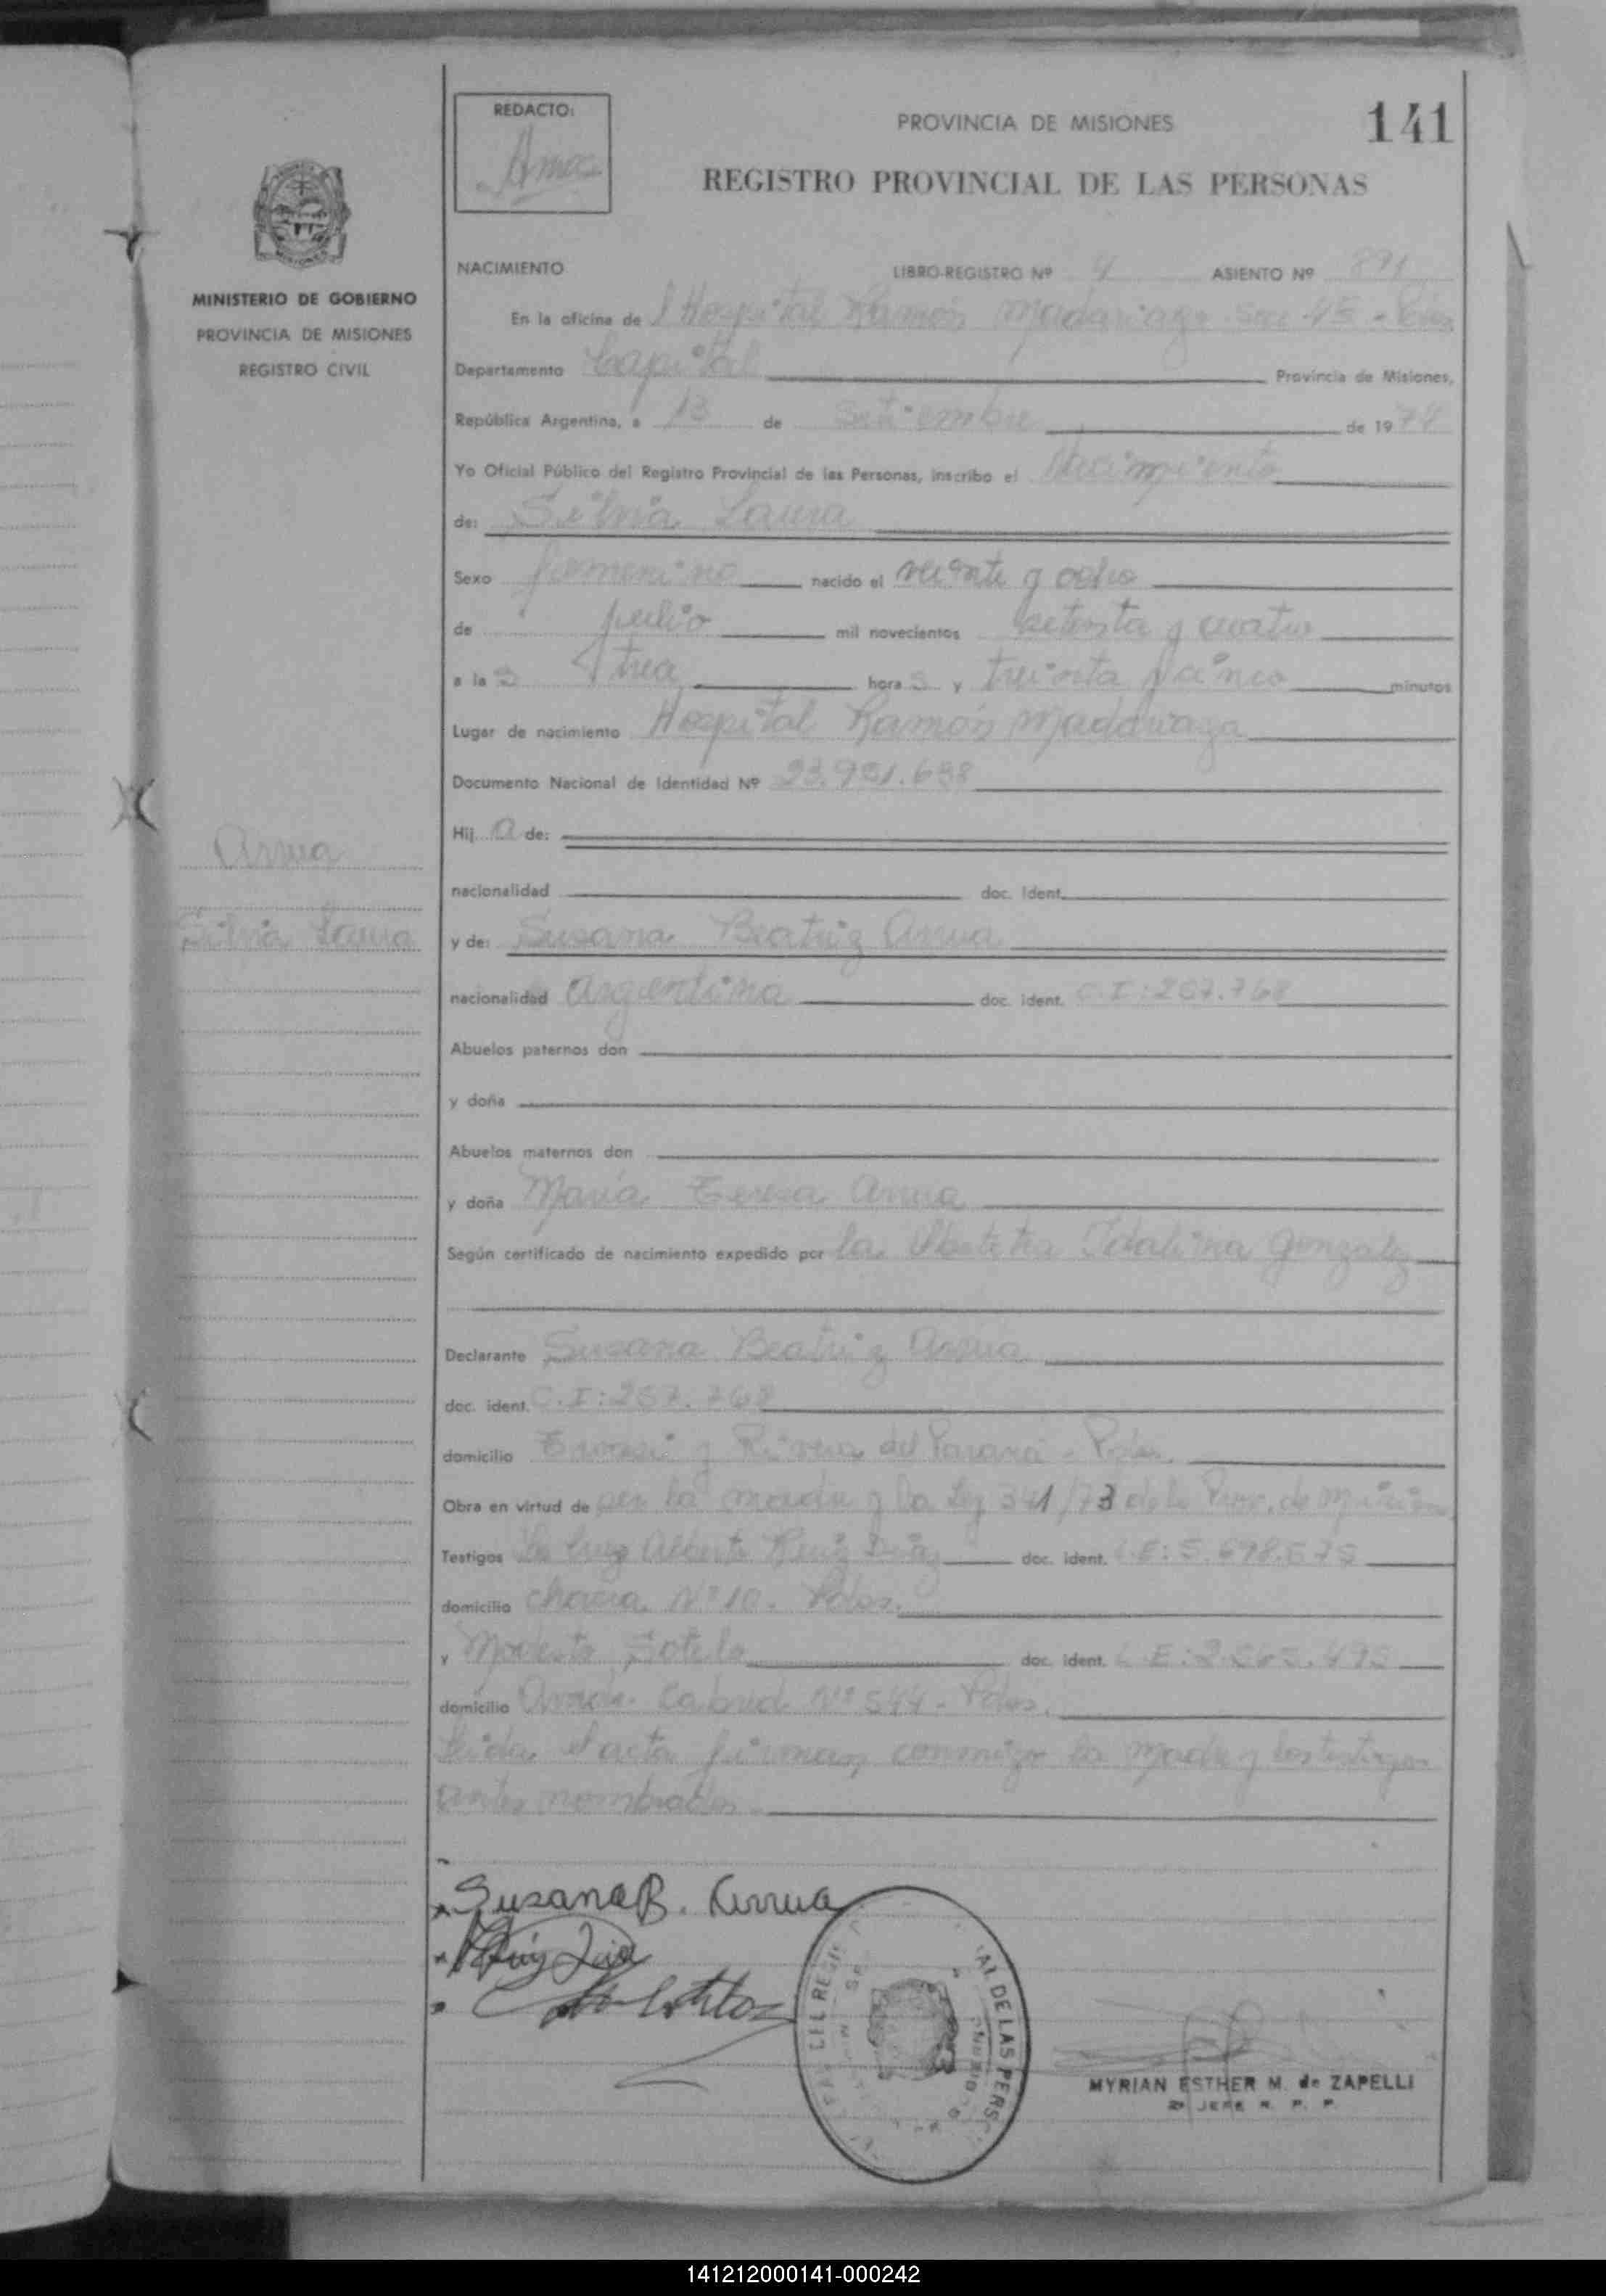 REDACTO:
PROVINCIA DE MISIONES
141
REGISTRO PROVINCIAL DE LAS PERSONAS
MINISTERIO DE GOBIERNO
PROVINCIA DE MISIONES
REGISTRO CIVIL
NACIMIENTO LIBRO-REGISTRO Nº 4 ASIENTO Nº 891
En la oficina de l Hospital Ramón Madariaga
Departamento Capital Provincia de Misiones,
República Argentina, a 13 de Setiembre de 1974
Yo Oficial Público del Registro Provincial de las Personas, inscribo el Nacimiento
de: Silvia Laura
Sexo femenino nacido el veinte y ocho
de julio mil novecientos setenta y cuatro
a la s tres hora s y treinta y cinco minutos
Lugar de nacimiento Hospital Ramón Madariaga
Documento Nacional de Identidad Nº
Hij a de:
Arrua
nacionalidad doc. Ident.
Silvia Laura
y de: Susana Beatriz Arrua
nacionalidad argentina doc. ident. C.I: 257.768
Abuelos paternos don
y doña
Abuelos maternos don
y doña María Teresa Arrua
Según certificado de nacimiento expedido por la Obstetra Idalina Gonzalez
Declarante Susana Beatriz Arrua
doc. ident. C.I: 257.768
domicilio y Rivera del Paraná - Pdas.
Obra en virtud de ser la madre y la Ley 341/73 de la Prov. de Misiones
Testigos Alberto Ruiz Diaz doc. ident. L.E: 5.698.575
domicilio Chacra Nº 10. Pdas.
y Modesto Sotelo doc. ident. L.E:
domicilio Avda. Cabred Nº 544 - Pdas.
Leida el acta firman conmigo la madre y los testigos
antes nombrados
Susana B. Arrua
DE LAS PERS
MYRIAN ESTHER M. de ZAPELLI
2º JEFE R. P. P.
141212000141-000242